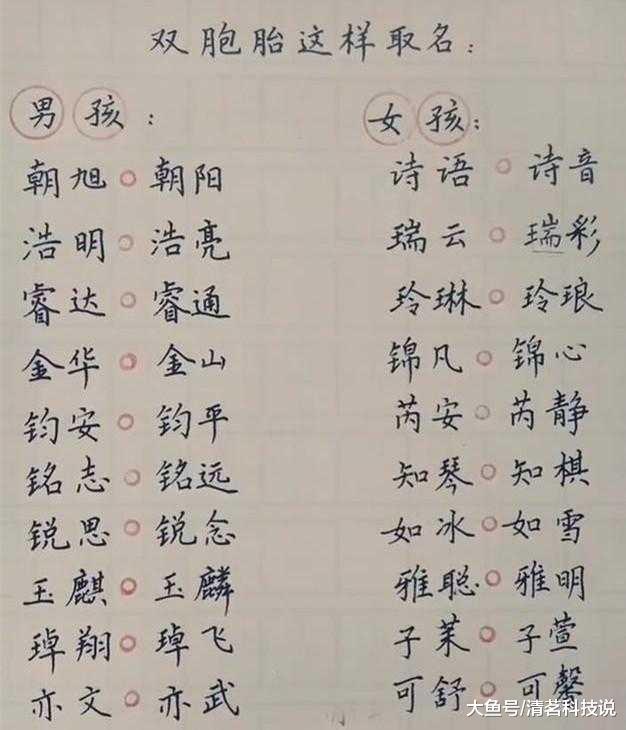 双胞胎这样取名：
男孩：
朝旭○朝阳
浩明○浩亮
睿达○睿通
金华○金山
钧安○钧平
铭志○铭远
锐思○锐念
玉麒○玉麟
琸翔○琸飞
亦文○亦武
女孩：
诗语○诗音
瑞云○瑞彩
玲琳○玲琅
锦凡○锦心
芮安○芮静
知琴○知棋
如冰○如雪
雅聪○雅明
子茉○子萱
可舒○可馨
大鱼号/清茗科技说